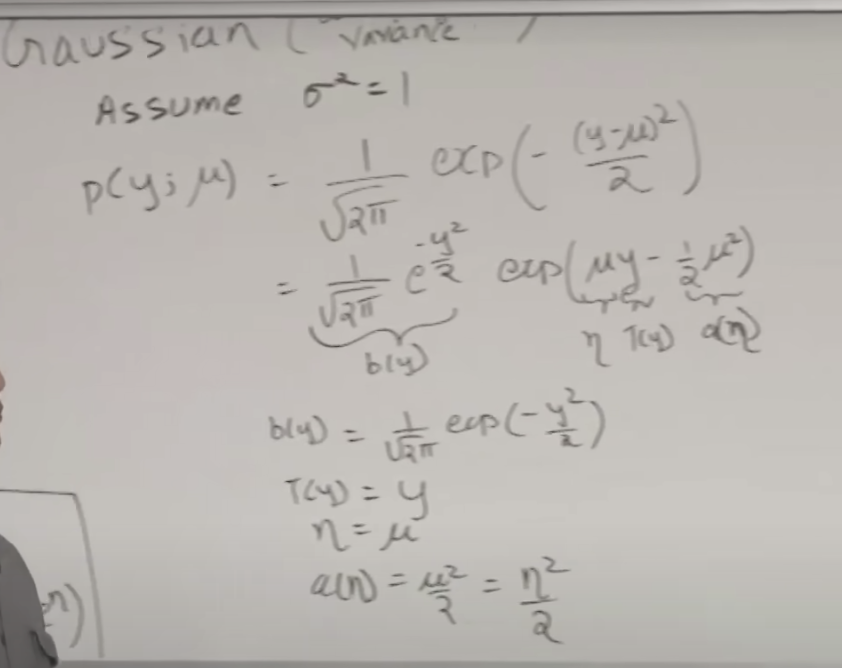 Gaussian ( Variance )
Assume σ² = 1
p(y; μ) = 1/√2π exp(- (y-μ)²/2)
= 1/√2π e^(-y²/2) exp(μy - 1/2 μ²)
b(y) η T(y) a(η)
b(y) = 1/√2π exp(-y²/2)
T(y) = y
η = μ
a(η) = μ²/2 = η²/2
η)